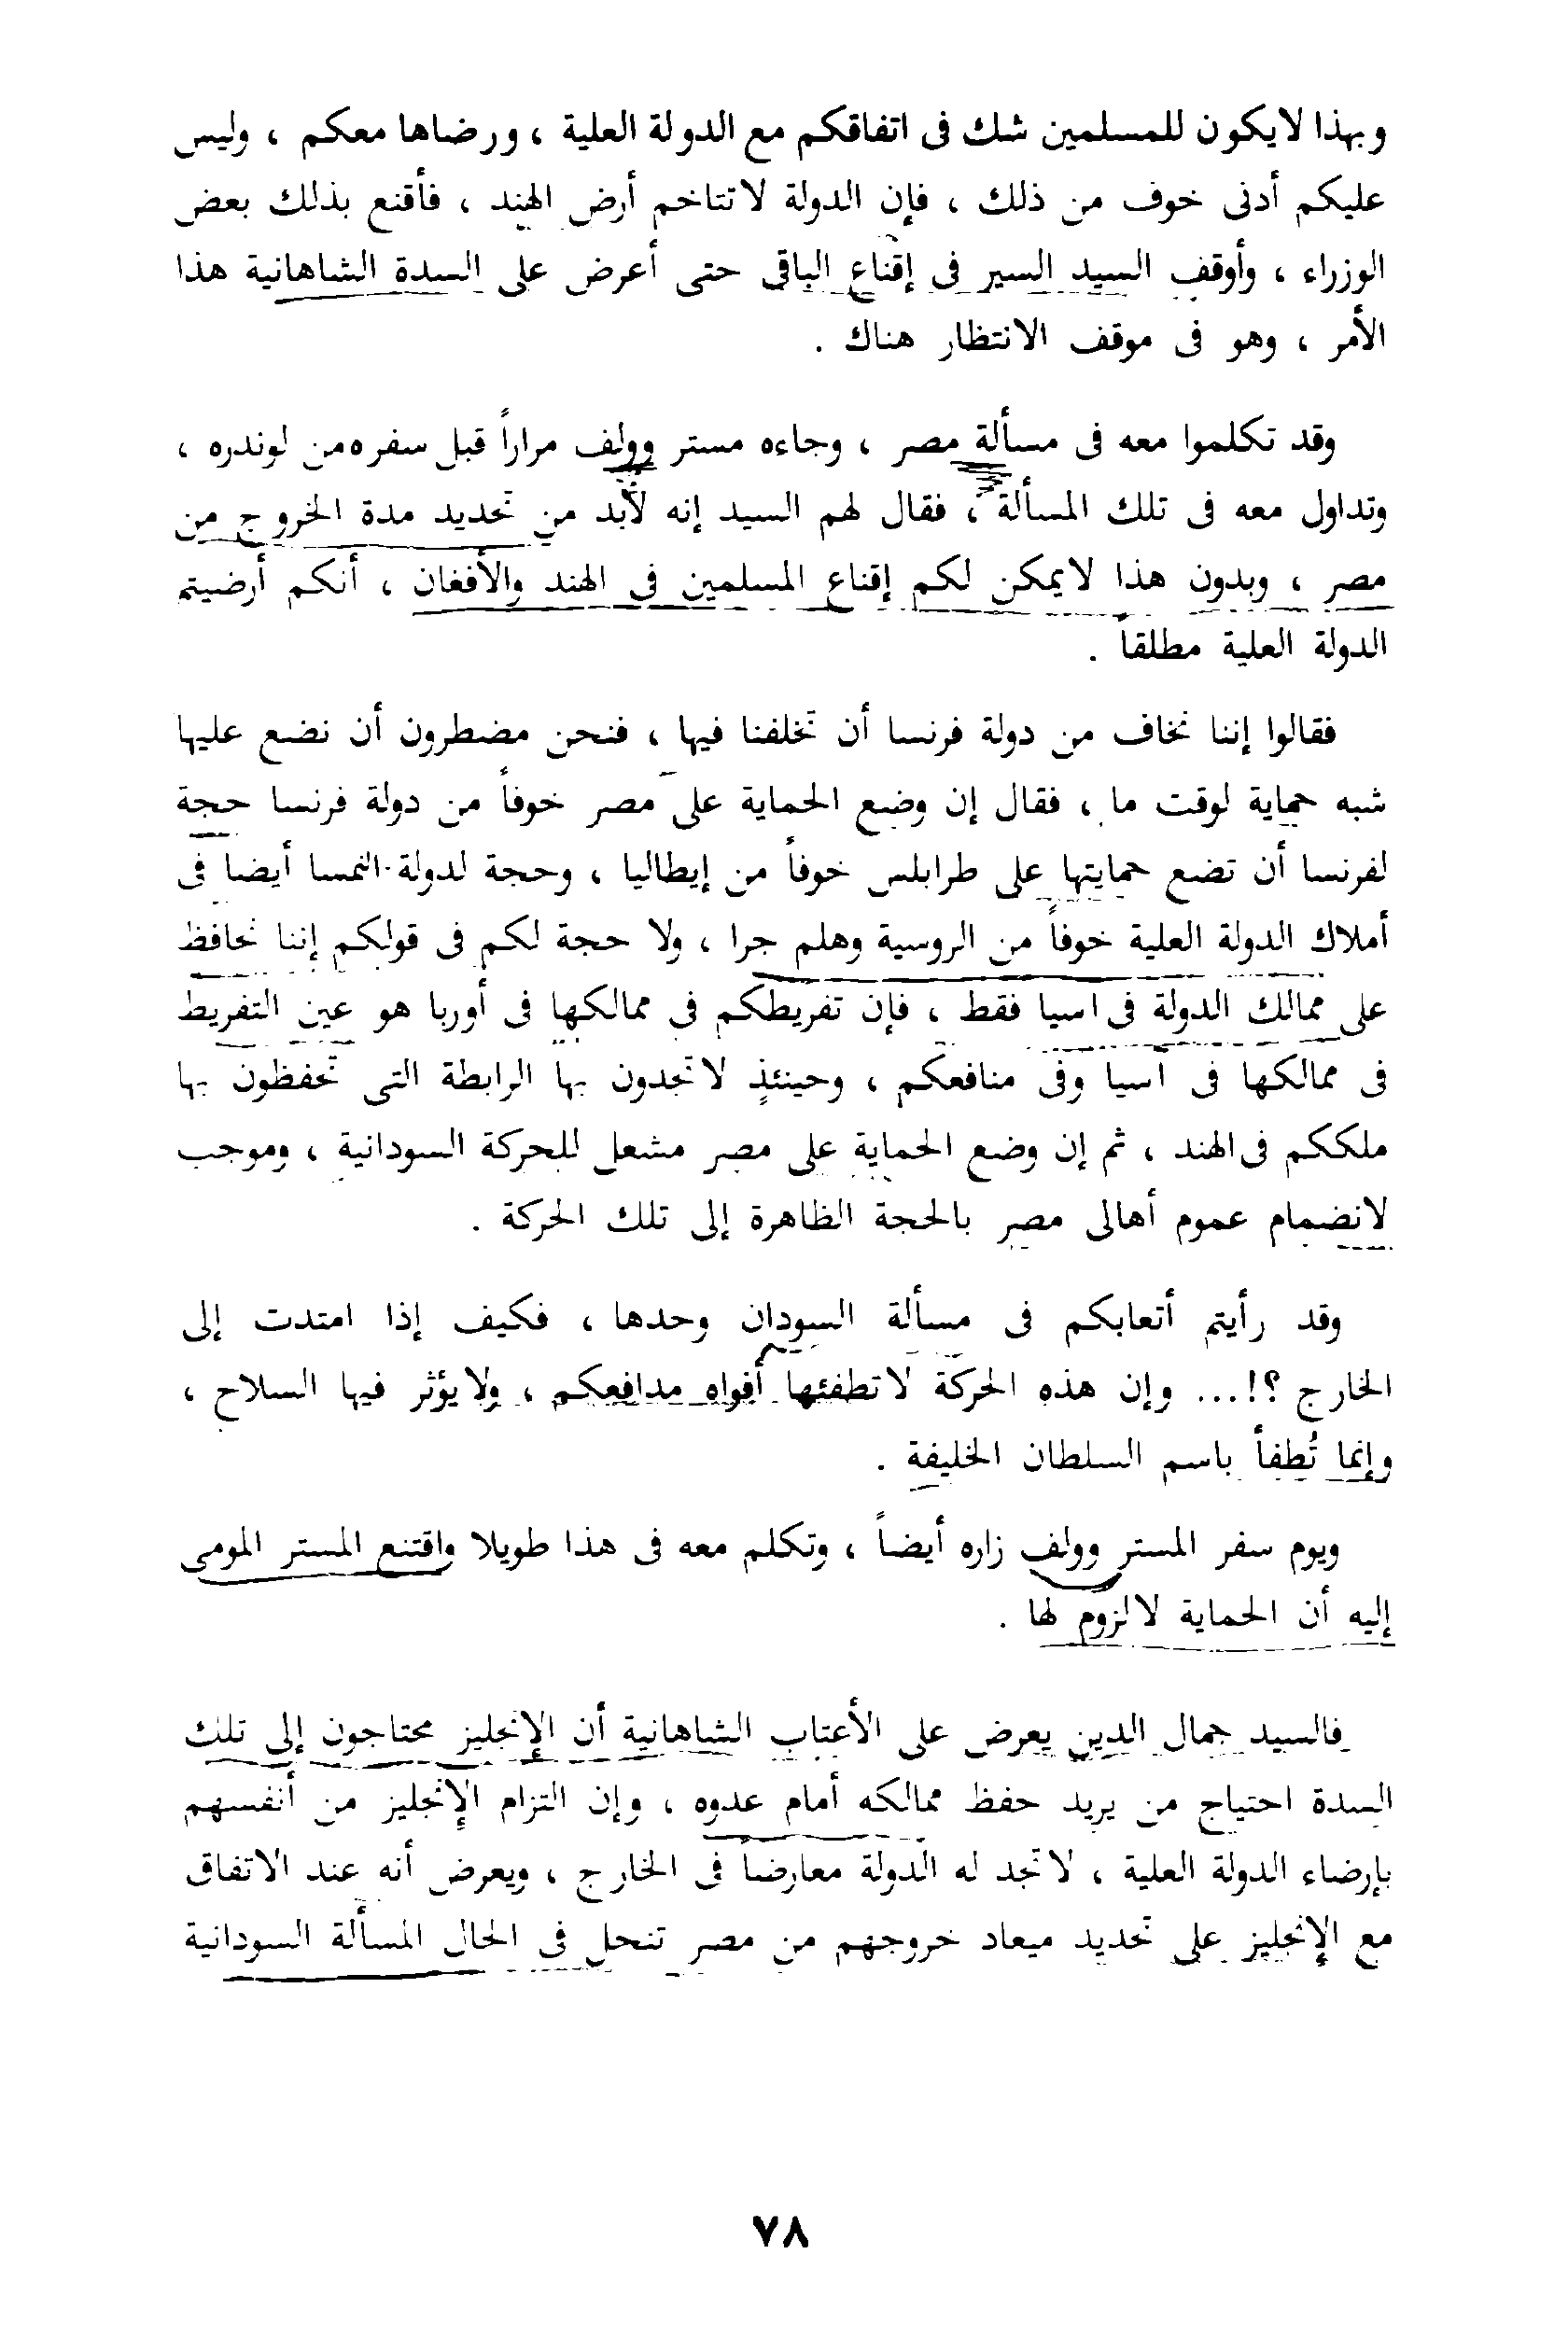 وبهذا لايكون للمسلمين شك فى اتفاقكم مع الدولة العلية ، ورضاها معكم ، وليس
عليكم أدنى خوف من ذلك ، فإن الدولة لاتتاخم أرض الهند ، فأقنع بذلك بعض
الوزراء ، وأوقف السيد السير فى إقناع الباقى حتى أعرض على السدة الشاهانية هذا
الأمر ، وهو فى موقف الانتظار هناك .
وقد تكلموا معه فى مسألة مصر ، وجاءه مستر وولف مراراً قبل سفره من لوندره ،
وتداول معه فى تلك المسألة ، فقال لهم السيد إنه لابد من تحديد مدة الخروج من
مصر ، وبدون هذا لايمكن لكم إقناع المسلمين فى الهند والأفغان ، أنكم أرضيتم
الدولة العلية مطلقاً .
فقالوا إننا نخاف من دولة فرنسا أن تخلفنا فيها ، فنحن مضطرون أن نضع عليها
شبه حماية لوقت ما ، فقال إن وضع الحماية على مصر خوفاً من دولة فرنسا حجة
لفرنسا أن تضع حمايتها على طرابلس خوفاً من إيطاليا ، وحجة لدولة النمسا أيضا فى
أملاك الدولة العلية خوفاً من الروسية وهلم جرا ، ولا حجة لكم فى قولكم إننا نحافظ
على ممالك الدولة فى اسيا فقط ، فإن تفريطكم فى ممالكها فى أوربا هو عين التفريط
فى ممالكها فى آسيا وفى منافعكم ، وحينئذٍ لاتجدون بها الرابطة التى تحفظون بها
ملككم فى الهند ، ثم إن وضع الحماية على مصر مشعل للحركة السودانية ، وموجب
لانضمام عموم أهالى مصر بالحجة الظاهرة إلى تلك الحركة .
وقد رأيتم أتعابكم فى مسألة السودان وحدها ، فكيف إذا امتدت إلى
الخارج ؟!... وإن هذه الحركة لاتطفئها أفواه مدافعكم ، ولايؤثر فيها السلاح ،
وإنما تُطفأ باسم السلطان الخليفة .
ويوم سفر المستر وولف زاره أيضاً ، وتكلم معه فى هذا طويلا واقتنع المستر المومى
إليه أن الحماية لالزوم لها .
فالسيد جمال الدين يعرض على الأعتاب الشاهانية أن الإنجليز محتاجون إلى تلك
السدة احتياج من يريد حفظ ممالكه أمام عدوه ، وإن التزام الإنجليز من أنفسهم
بإرضاء الدولة العلية ، لاتجد له الدولة معارضاً فى الخارج ، ويعرض أنه عند الاتفاق
مع الإنجليز على تحديد ميعاد خروجهم من مصر تنحل فى الحال المسألة السودانية
٧٨